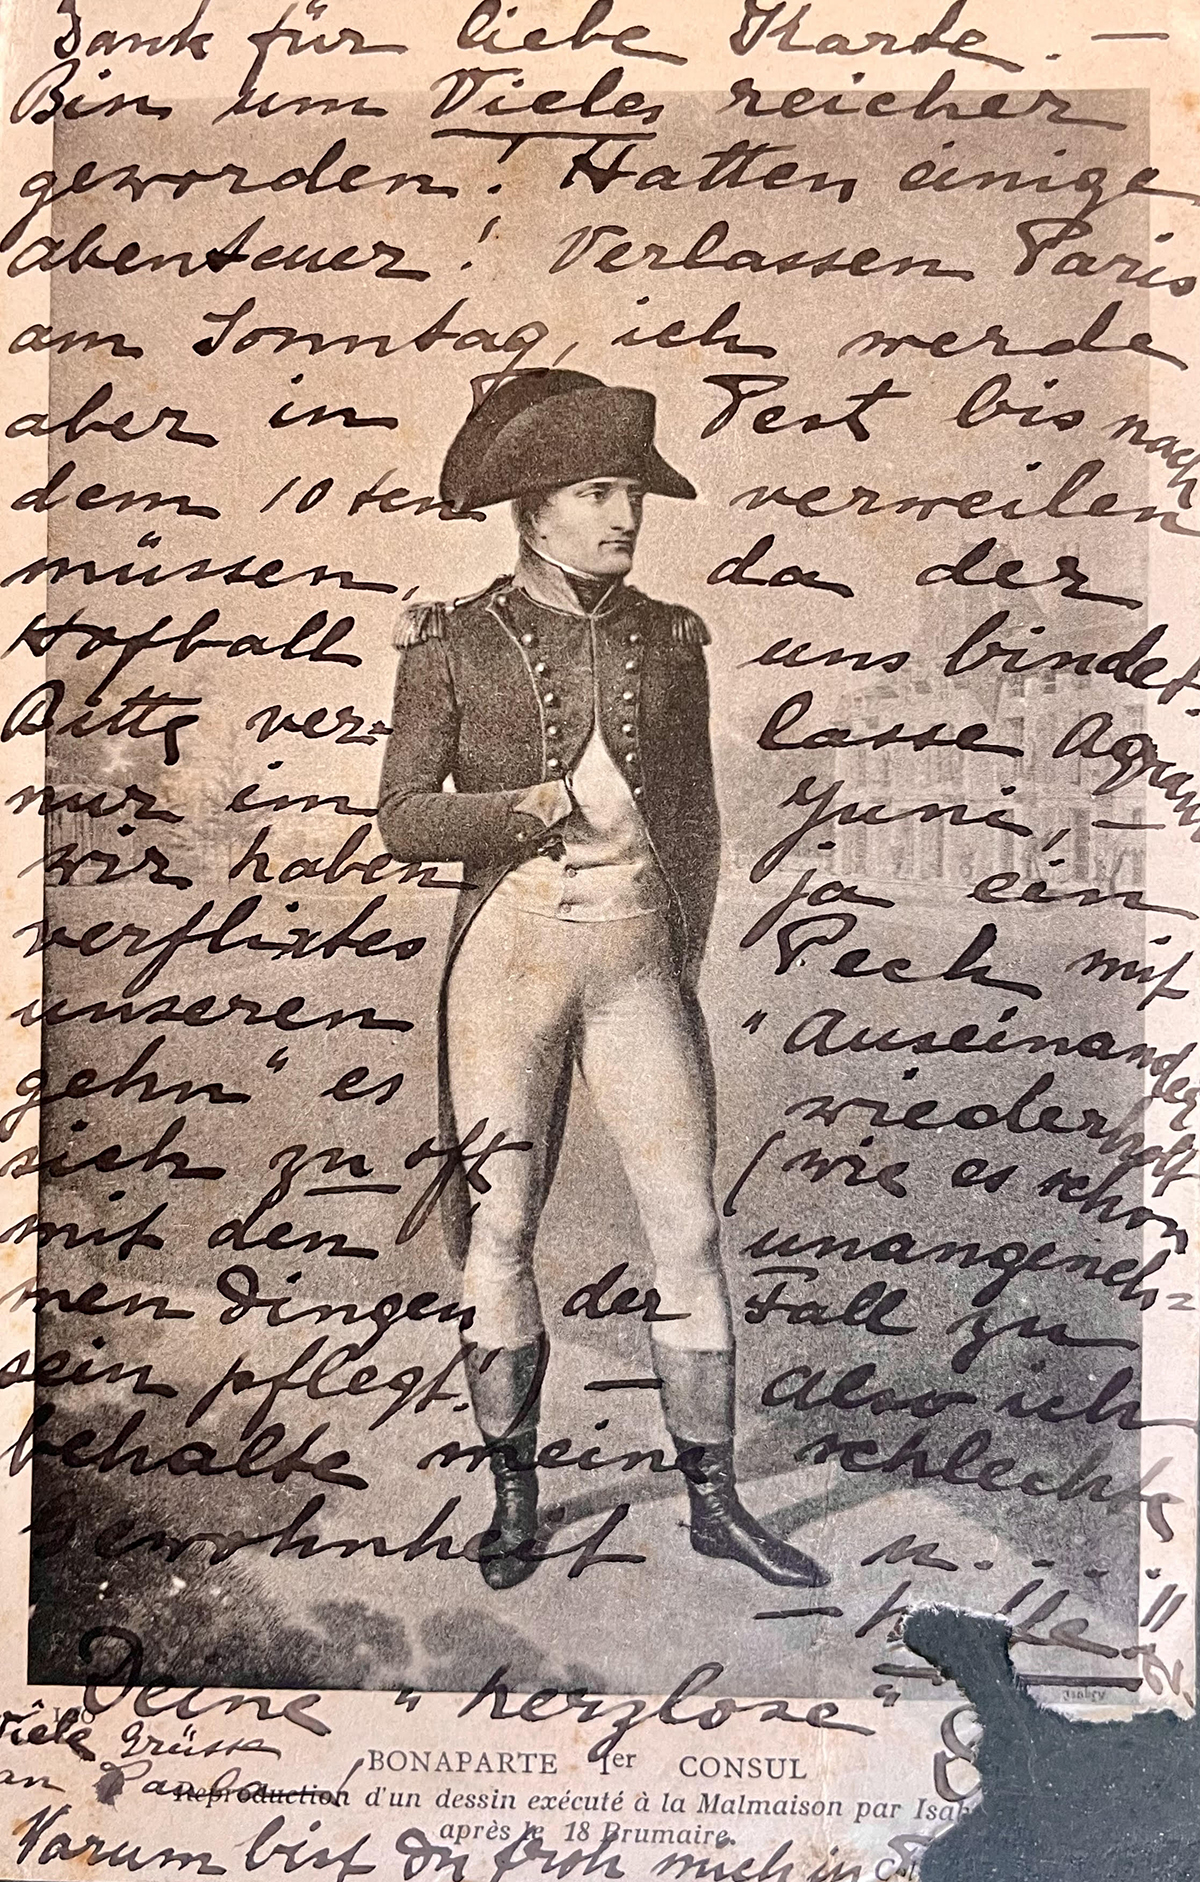 Dank für liebe Karte. —
Bin um Vieles reicher
geworden! Hatten einige
abenteuer! Verlassen Paris
am Sonntag, ich werde
aber in Pest bis nach
dem 10ten verweilen
müssen, da der
Hofball uns bindet.
Bitte ver= lasse Agram
nur im Juni, —
wir haben ja ein
verflixtes Pech mit
unseren "Auseinander
gehn" es wiederholt
sich zu oft (wie es schon
mit den unangeneh=
men Dingen der Fall zu
sein pflegt!) — also ich
behalte meine schlechte
Gewohnheit u..
Deine "herzlose"
Viele Grüsse
an
BONAPARTE 1er CONSUL
Reproduction d'un dessin exécuté à la Malmaison par Isab
après le 18 Brumaire.
Warum bist Du froh mich in